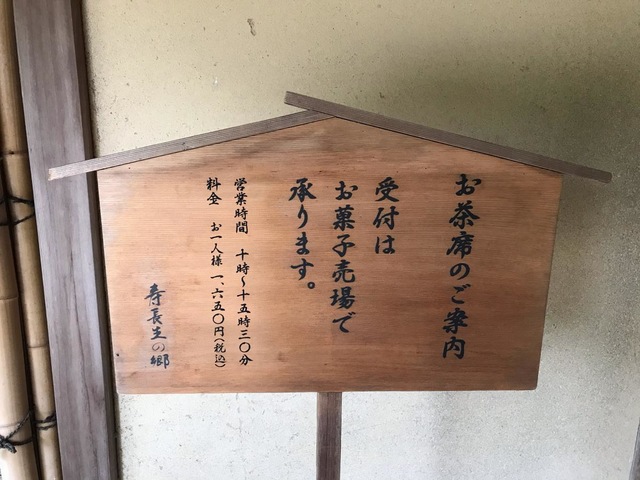 お茶席のご案内
受付は
お菓子売場で
承ります。
営業時間 十時〜十五時三〇分
料金 お一人様 一、六五〇円(税込)
寿長生の郷